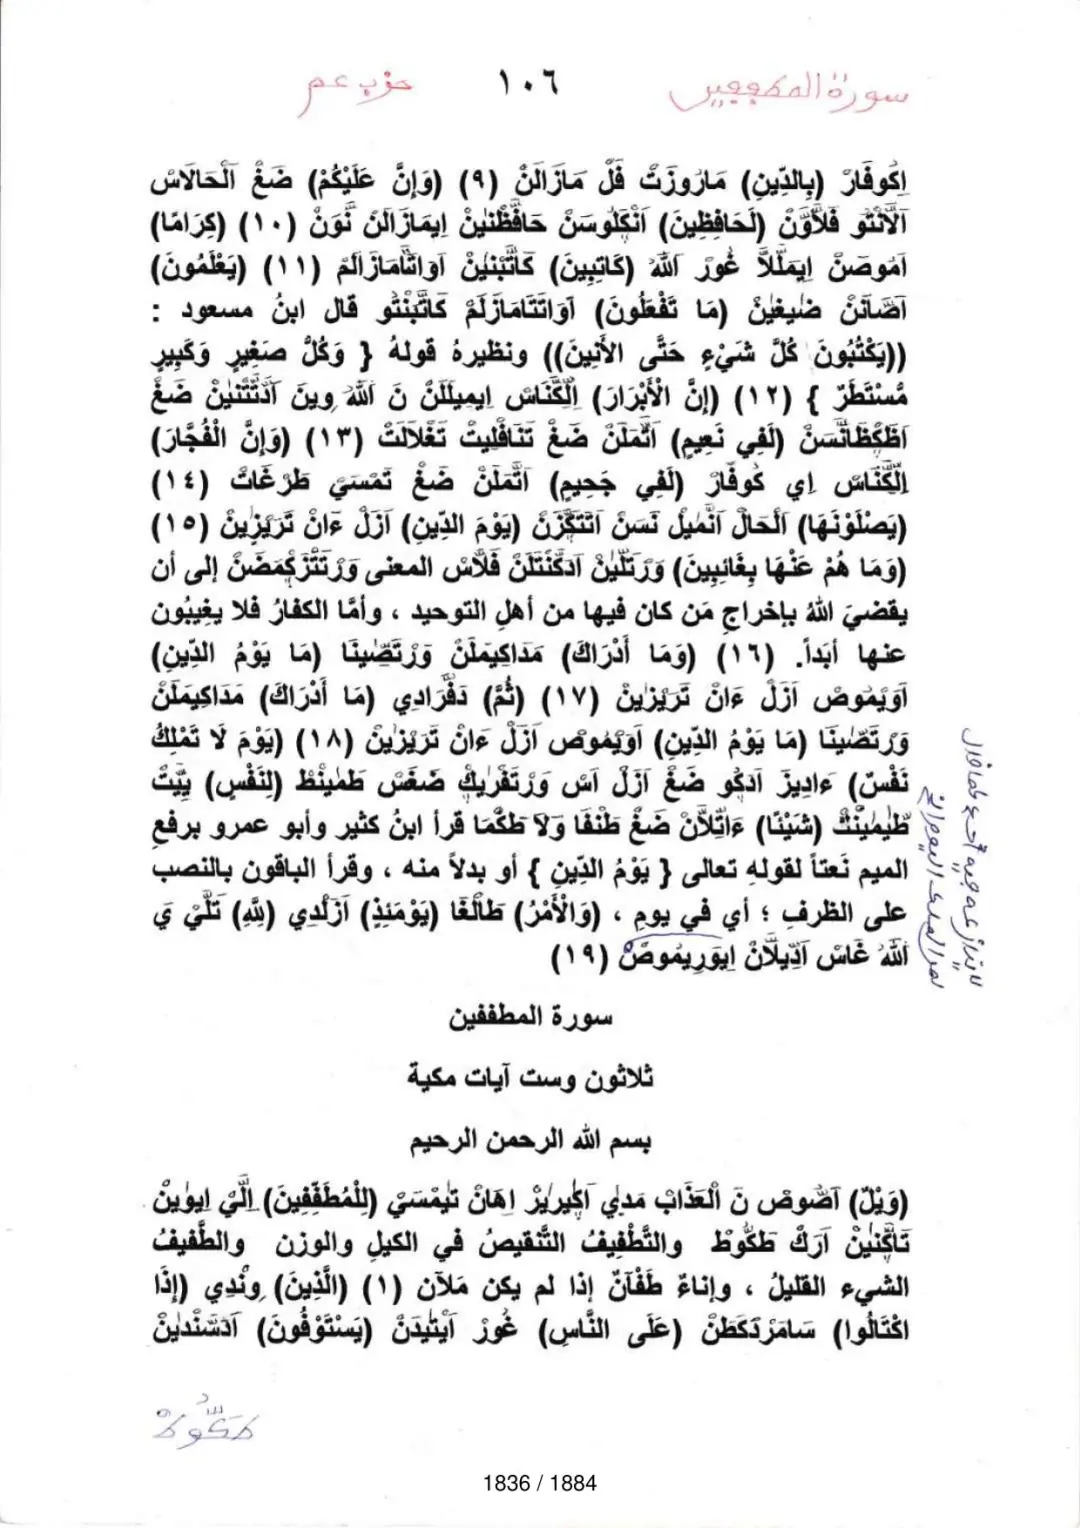 سورة المطففين ١٠٦ حزب عم
اِكُوفَارْ (بِالدِّينِ) مَارُوزَتْ فَلْ مَازَالَنْ (٩) (وَإِنَّ عَلَيْكُمْ) ضَغْ اَلْحَالَاسْ
اَلَانْتَوْ فَلَاوَنْ (لَحَافِظِينَ) اَنْكَلُوسَنْ حَافَّظْنٰينْ اِيمَازَالَنْ نَّوَنْ (١٠) (كِرَامًا)
اَمُوصَنْ اِيمَلَّلاَّ غُورْ اَللهْ (كَاتِبِينَ) كَاتَّبْنٰينْ اَوَاتَّامَازَالَمْ (١١) (يَعْلَمُونَ)
اَصَّانَنْ ضٰيغٰينْ (مَا تَفْعَلُونَ) اَوَاتَتَامَازَلَمْ كَاتَّبْنْتَو قال ابنُ مسعود :
((يَكْتُبُونَ كُلَّ شَيْءٍ حَتَّى الأَنِينَ)) ونظيرهُ قولهُ { وَكُلُّ صَغِيرٍ وَكَبِيرٍ
مُّسْتَطَرٌ } (١٢) (إِنَّ الْأَبْرَارَ) اِلْكَنَاسْ اِيمِيلَلَنْ نَ اَللهْ وِينَ اَذْتَتَّنٰينْ ضَغْ
اَظْكَظَانَسَنْ (لَفِي نَعِيمٍ) اَتَّمَلَنْ ضَغْ تَنَافْلِيتْ تَغْلَالَتْ (١٣) (وَإِنَّ الْفُجَّارَ)
اِلْكَنَاسْ اِي كُوفَارْ (لَفِي جَحِيمٍ) اَتَّمَلَنْ ضَغْ تَمْسَيْ طَرْغَاتْ (١٤)
(يَصْلَوْنَهَا) اَلْحَالْ اَنْمَيَلْ نَسَنْ اَتَتَكَّزَنْ (يَوْمَ الدِّينِ) اَزَلْ ءَانْ تَرَيْزٰينْ (١٥)
(وَمَا هُمْ عَنْهَا بِغَائِبِينَ) وَرَتَلّٰينْ اَدَكْنَتَلَنْ فَلَاسْ المعنى وَرَتَتَزْكَمَضَنْ إلى أن
يقضيَ اللهُ بإخراجِ مَن كان فيها من أهلِ التوحيد ، وأمَّا الكفارُ فلا يغِيبُون
عنها أبَداً. (١٦) (وَمَا أَدْرَاكَ) مَدَاكِيمَلَنْ وَرْتَصّٰينَا (مَا يَوْمُ الدِّينِ)
اَوَيْمُوصْ اَزَلْ ءَانْ تَرَيْزٰينْ (١٧) (ثُمَّ) دَفْرَادِي (مَا أَدْرَاكَ) مَدَاكِيمَلَنْ
وَرْتَصّٰينَا (مَا يَوْمُ الدِّينِ) اَوَيْمُوصْ اَزَلْ ءَانْ تَرَيْزٰينْ (١٨) (يَوْمَ لَا تَمْلِكُ
نَفْسٌ) ءَادِيزْ اَدَكُو ضَغْ اَزَلْ اَسْ وَرْتَفْرٰيكْ ضَغَسْ طَمٰينْطْ (لِنَفْسٍ) يِيَّتْ
طٰيْمٰينْتْ (شَيْئًا) ءَاتَلَّانْ ضَغْ طَنْفَا وَلَا طَكْمَا قرأ ابنُ كثير وأبو عمرو برفعِ
الميم نَعتاً لقولهِ تعالى { يَوْمُ الدِّينِ } أو بدلاً منه ، وقرأ الباقون بالنصب
على الظرفِ ؛ أي في يوم ، (وَالْأَمْرُ) طَالَغَا (يَوْمَئِذٍ) اَزَلْدِي (لِلَّهِ) تَلَّيْ يَ
اَللهْ غَاسْ اَدِّيلَانْ اِيوَرِيمُوصَنْ (١٩)
سورة المطففين
ثلاثون وست آيات مكية
بسم الله الرحمن الرحيم
(وَيْلٌ) اَضُّوصْ نَ اَلْعَذَابْ مَدٰي اَكْيرٰيرْ اِهَانْ تٰيمْسَيْ (لِلْمُطَفِّفِينَ) اِلَّيْ اِيوٰينْ
تَاكَّنٰينْ اَرَكْ طَكُّوطْ والتَّطْفِيفُ التَّنقيصُ في الكيلِ والوزن والطَّفيفُ
الشيء القليلُ ، وإناءٌ طَفَّآنٌ إذا لم يكن مَلآن (١) (الَّذِينَ) وِنْدِي (إِذَا
اكْتَالُوا) سَامَرْدَكَطَنْ (عَلَى النَّاسِ) غُورْ اَيْتٰيدَنْ (يَسْتَوْفُونَ) اَدَسَّنْدٰينْ
طَكُّوطْ
1836 / 1884